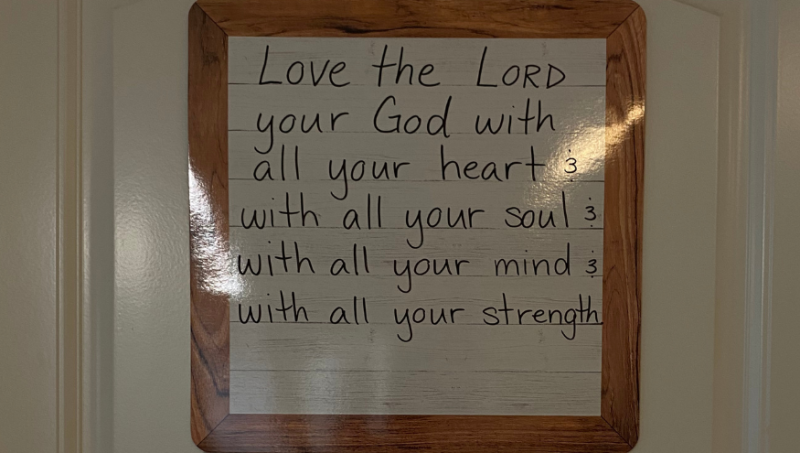 Love the LORD
your God with
all your heart &
with all your soul &
with all your mind &
with all your strength